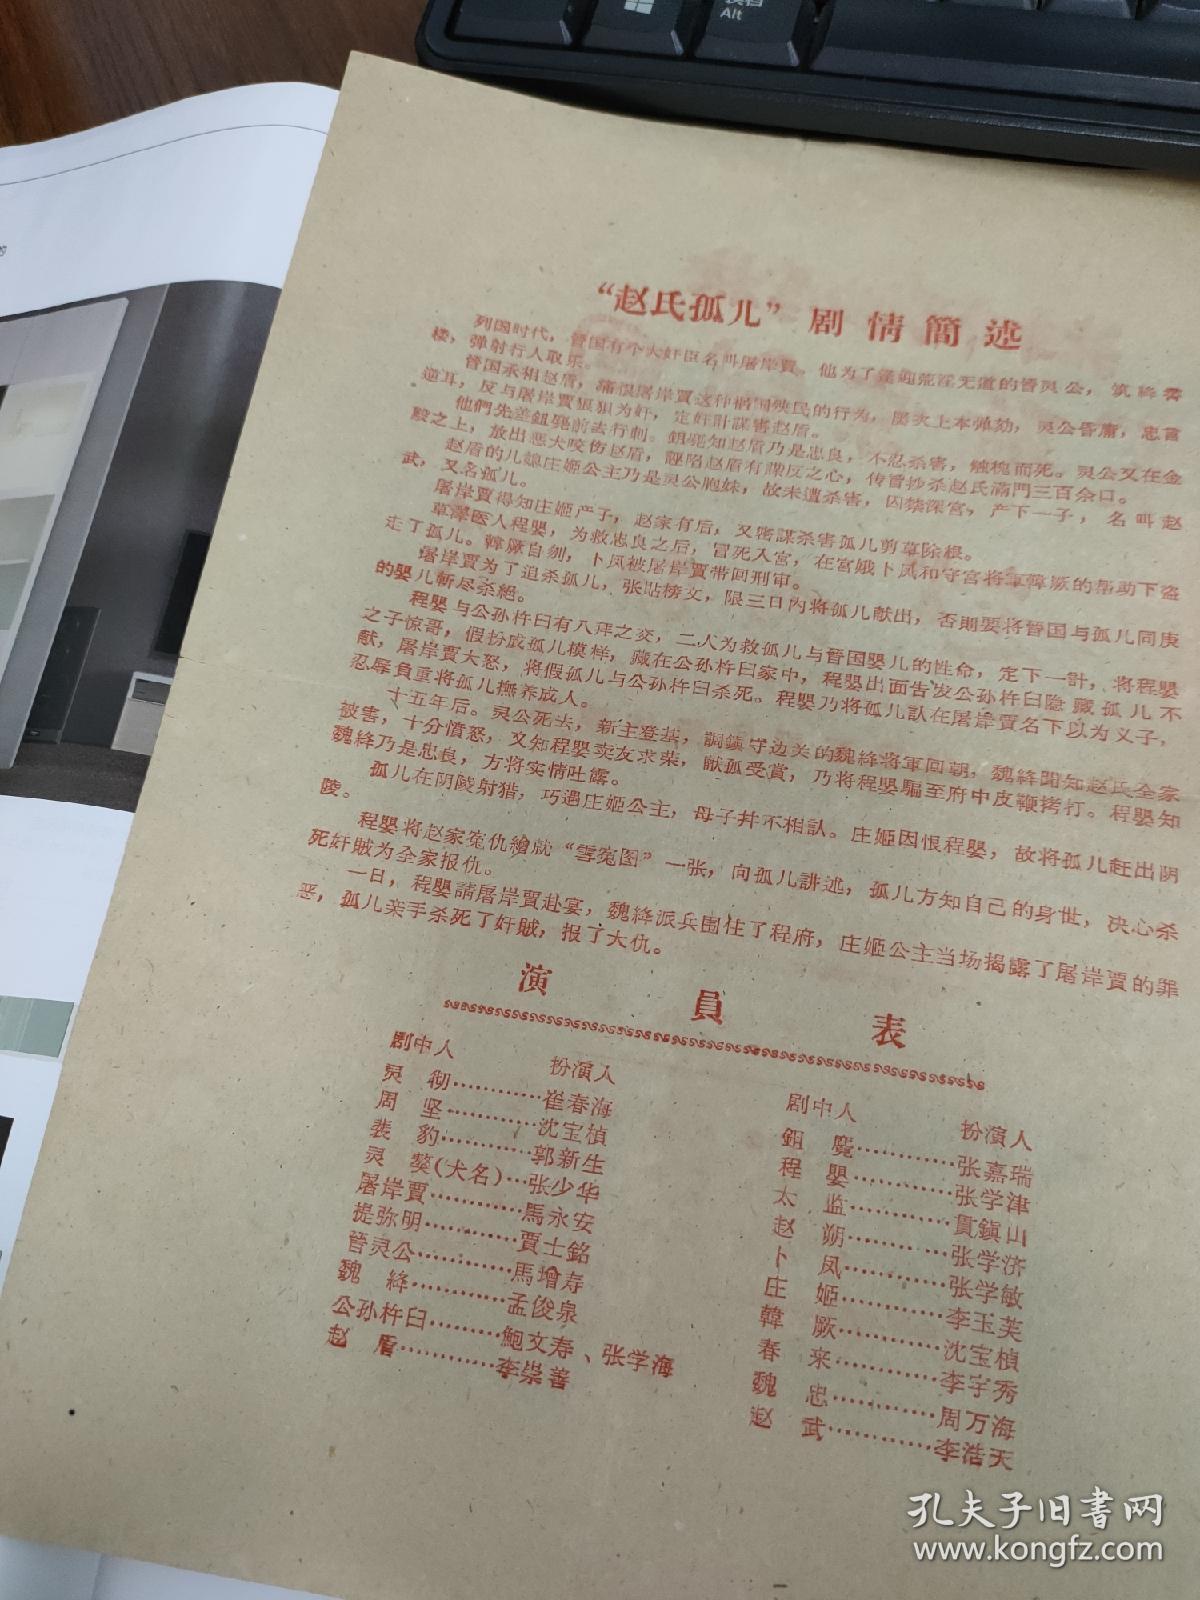 Alt
的
“赵氏孤儿”剧情簡述
列国时代，晉国有个大奸臣名叫屠岸賈。他为了逢迎荒淫无道的晉灵公，筑絳霄
楼，弹射行人取乐。
晉国承相赵盾，痛恨屠岸賈这种祸国殃民的行为，屡次上本弹劾，灵公昏庸，忠言
逆耳，反与屠岸賈狼狽为奸，定奸計謀害赵盾。
他們先差鉏麑前去行刺。鉏麑知赵盾乃是忠良，不忍杀害，触槐而死。灵公又在金
殿之上，放出悪犬咬伤赵盾，誣陷赵盾有謀反之心，传旨抄杀赵氏滿門三百余口。
赵盾的儿媳庄姬公主乃是灵公胞妹，故未遭杀害，囚禁深宫，产下一子，名叫赵
武，又名孤儿。
屠岸賈得知庄姬产子，赵家有后，又密謀杀害孤儿剪草除根。
草澤医人程嬰，为救忠良之后，冒死入宫，在宫娥卜凤和守宫将軍韓厥的帮助下盜
走了孤儿。韓厥自刎，卜凤被屠岸賈带回刑审。
屠岸賈为了追杀孤儿，张貼榜文，限三日內将孤儿献出，否則要将晉国与孤儿同庚
的嬰儿斬尽杀絕。
程嬰与公孙杵臼有八拜之交，二人为救孤儿与晉国嬰儿的性命，定下一計，将程嬰
之子惊哥，假扮成孤儿模样，藏在公孙杵臼家中，程嬰出面告发公孙杵臼隐藏孤儿不
献，屠岸賈大怒，将假孤儿与公孙杵臼杀死。程嬰乃将孤儿訞在屠岸賈名下以为义子，
忍辱負重将孤儿撫养成人。
十五年后。灵公死去，新主登基，調鎮守边关的魏絳将軍回朝，魏絳聞知赵氏全家
被害，十分憤怒，又知程嬰卖友求荣，献孤受賞，乃将程嬰騙至府中皮鞭拷打。程嬰知
魏絳乃是忠良，方将实情吐露。
孤儿在阴陵射猎，巧遇庄姬公主，母子幷不相訞。庄姬因恨程嬰，故将孤儿赶出阴
陵。
程嬰将赵家冤仇繪成“雪冤图”一张，向孤儿讲述，孤儿方知自己的身世，决心杀
死奸賊为全家报仇。
一日，程嬰請屠岸賈赴宴，魏絳派兵圍住了程府，庄姬公主当场揭露了屠岸賈的罪
恶，孤儿亲手杀死了奸賊，报了大仇。
演員表
剧中人 扮演人
灵彻…………崔春海
周坚…………沈宝楨
裴豹…………郭新生
灵獒(犬名)…张少华
屠岸賈…………馬永安
提弥明…………賈士銘
晉灵公…………馬增寿
魏絳…………孟俊泉
公孙杵臼………鮑文寿、张学海
赵盾…………李崇善
剧中人 扮演人
鉏麑…………张嘉瑞
程嬰…………张学津
太监…………賈鎮山
赵朔…………张学济
卜凤…………张学敏
庄姬…………李玉芙
韓厥…………沈宝楨
春来…………李宇秀
魏忠…………周万海
赵武…………李浩天
孔夫子旧书网
www.kongfz.com